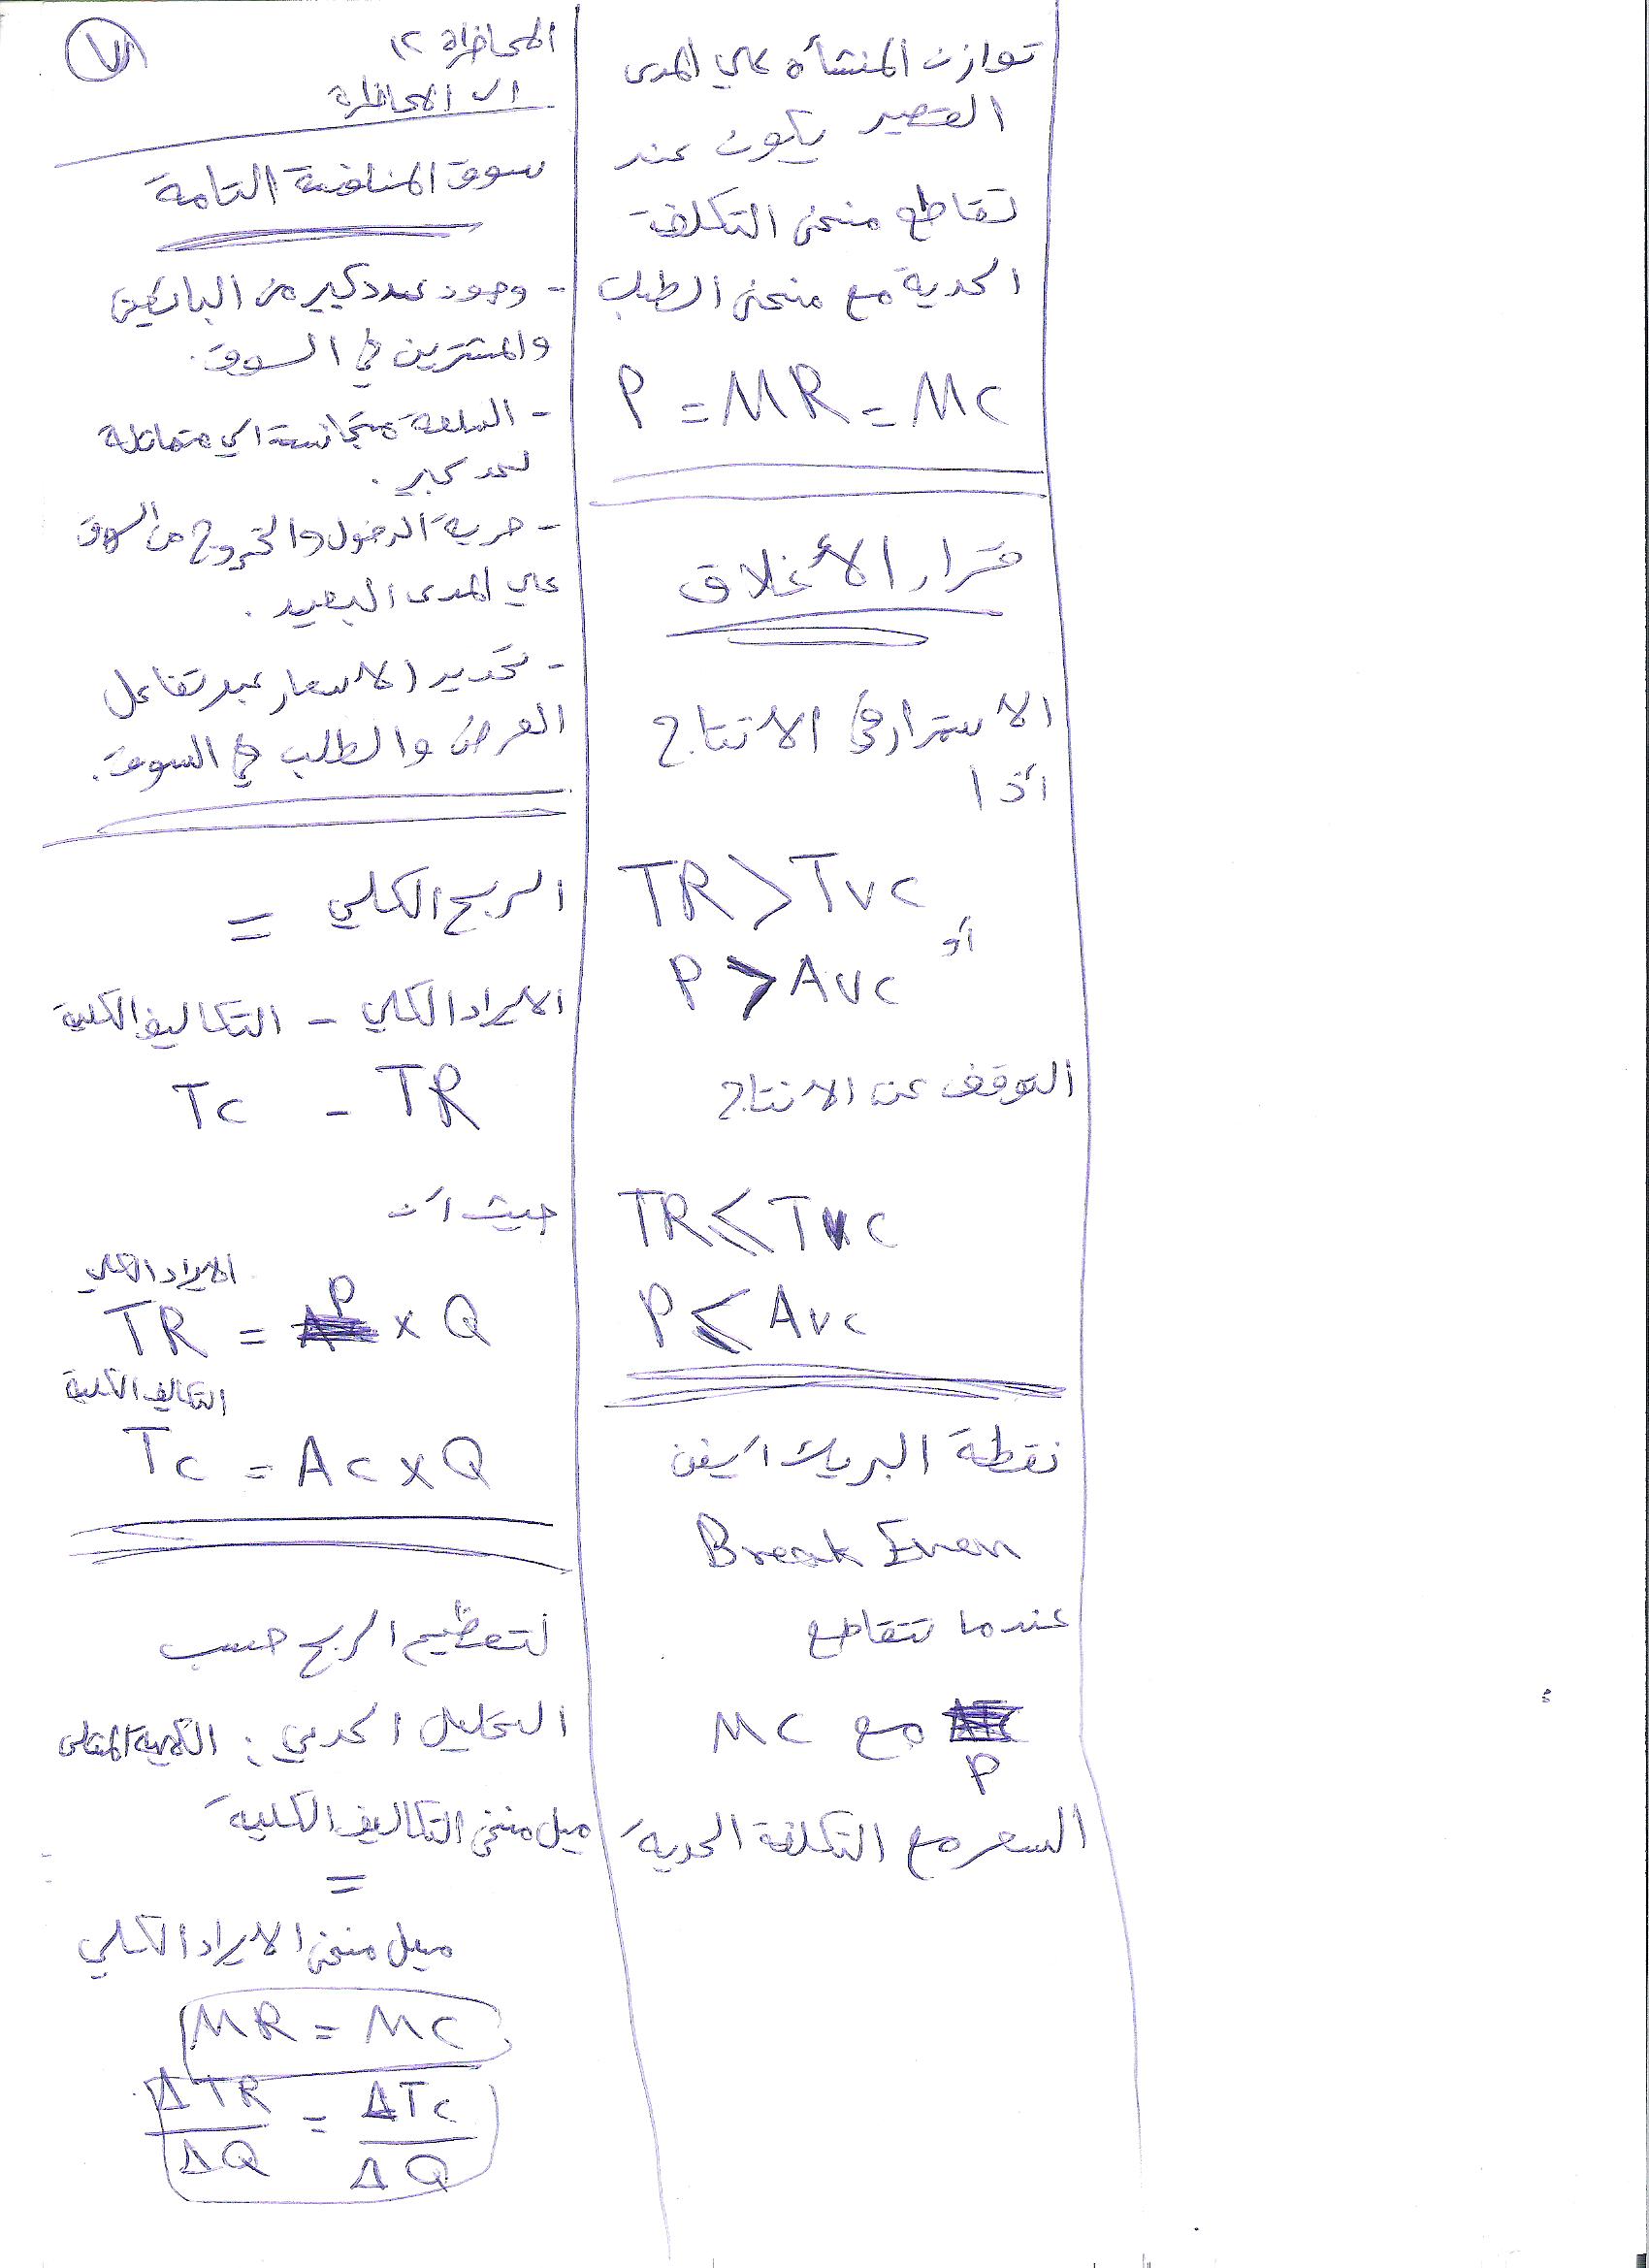 ٧
المحاضرة ١٢
سوق المنافسة التامة
- وجود عدد كبير من البائعين
والمشترين في السوق.
- السلعة متجانسة اي متماثلة
لحد كبير.
- حرية الدخول والخروج من السوق
علي المدى البعيد.
- تحديد الاسعار عبر تفاعل
العرض والطلب في السوق.
الربح الكلي =
الايراد الكلي - التكاليف الكلية
TR - Tc
حيث أن
الايراد الكلي
TR = P x Q
التكاليف الكلية
Tc = Ac x Q
لتعظيم الربح حسب
التحليل الحدي: الكمية المثلى
ميل منحنى التكاليف الكلية
=
ميل منحنى الايراد الكلي
MR = Mc
ΔTR / ΔQ = ΔTc / ΔQ
توازن المنشأه علي المدى
القصير يكون عند
تقاطع منحنى التكلفة
الحدية مع منحنى الطلب
P = MR = Mc
قرار الأغلاق
الاستمرار في الانتاج
أذا
TR > Tvc
أو
P > Avc
التوقف عن الانتاج
TR ⩽ Tvc
P ⩽ Avc
نقطة البريك أيفن
Break Even
عندما تتقاطع
P مع Mc
السعر مع التكلفة الحدية